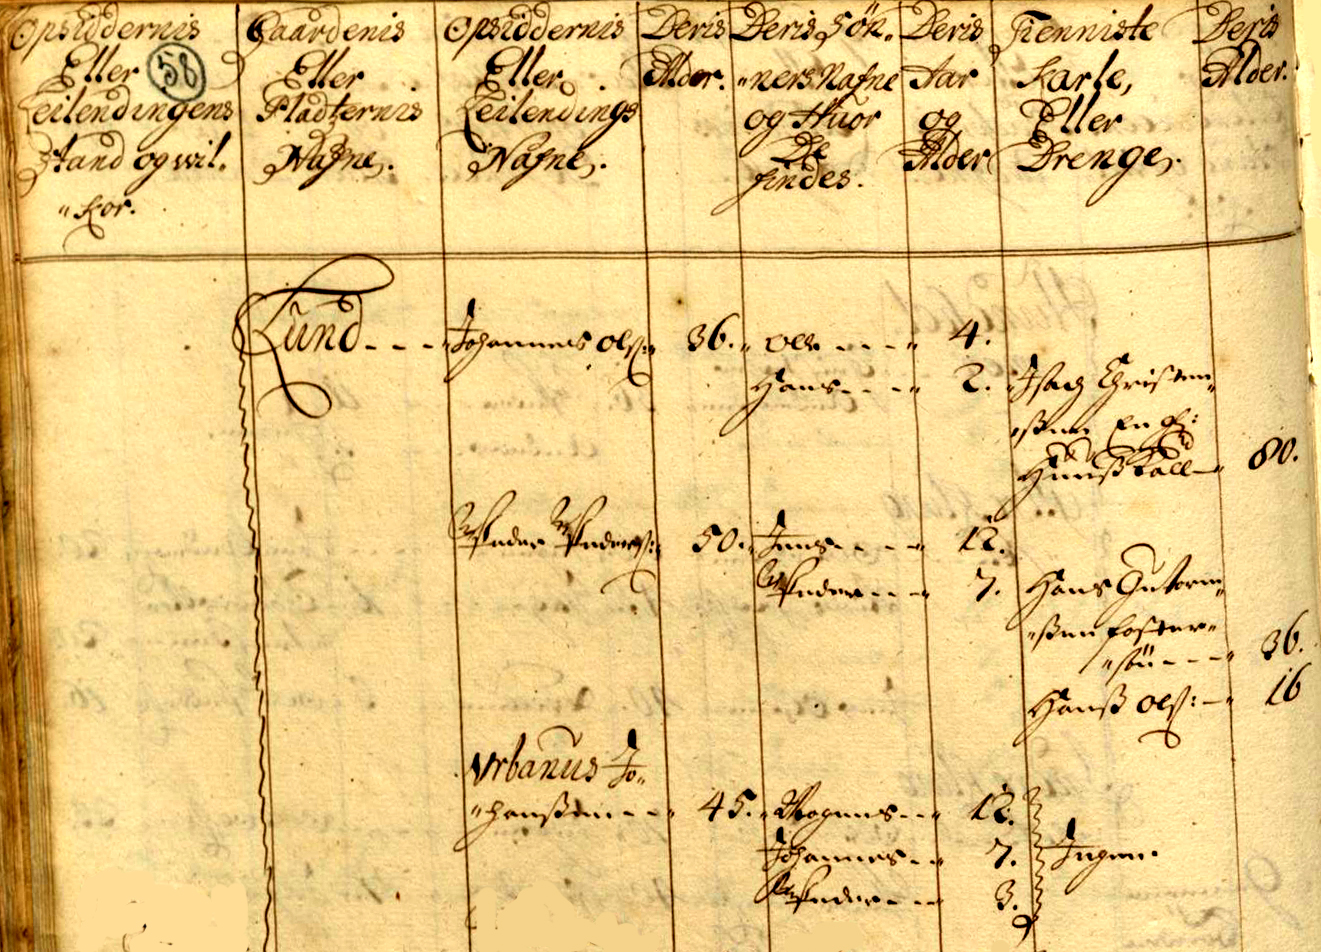 Opsiddernis Eller Leilendingens Stand og wil„kor.
58
Gaardenis Eller Pladternis Nafne.
Opsiddernis Eller Leilendings Nafne.
Deris Alder.
Deris Sön„ners Nafne og Huor De findes.
Deris Aar og Alder
Tienniste Karle, Eller Drenge.
Deris Alder.
Lund - - - Johannes Ols: 36. Ole - - - 4.
Hans - - - 2. Isach Christen„
„ßen En
Hueß Kall - 80.
Peder Peders: 50. Jens - - - - 12.
Peder - - - 7. Hans Gutorm„
„ßen foster„
„sön - - - 36.
Hanß Ols: - 16
Urbanus Jo„
„hanßen - - 45. Mogens - - 12.
Johannes - - 7. Ingen.
Peder - - - 3.